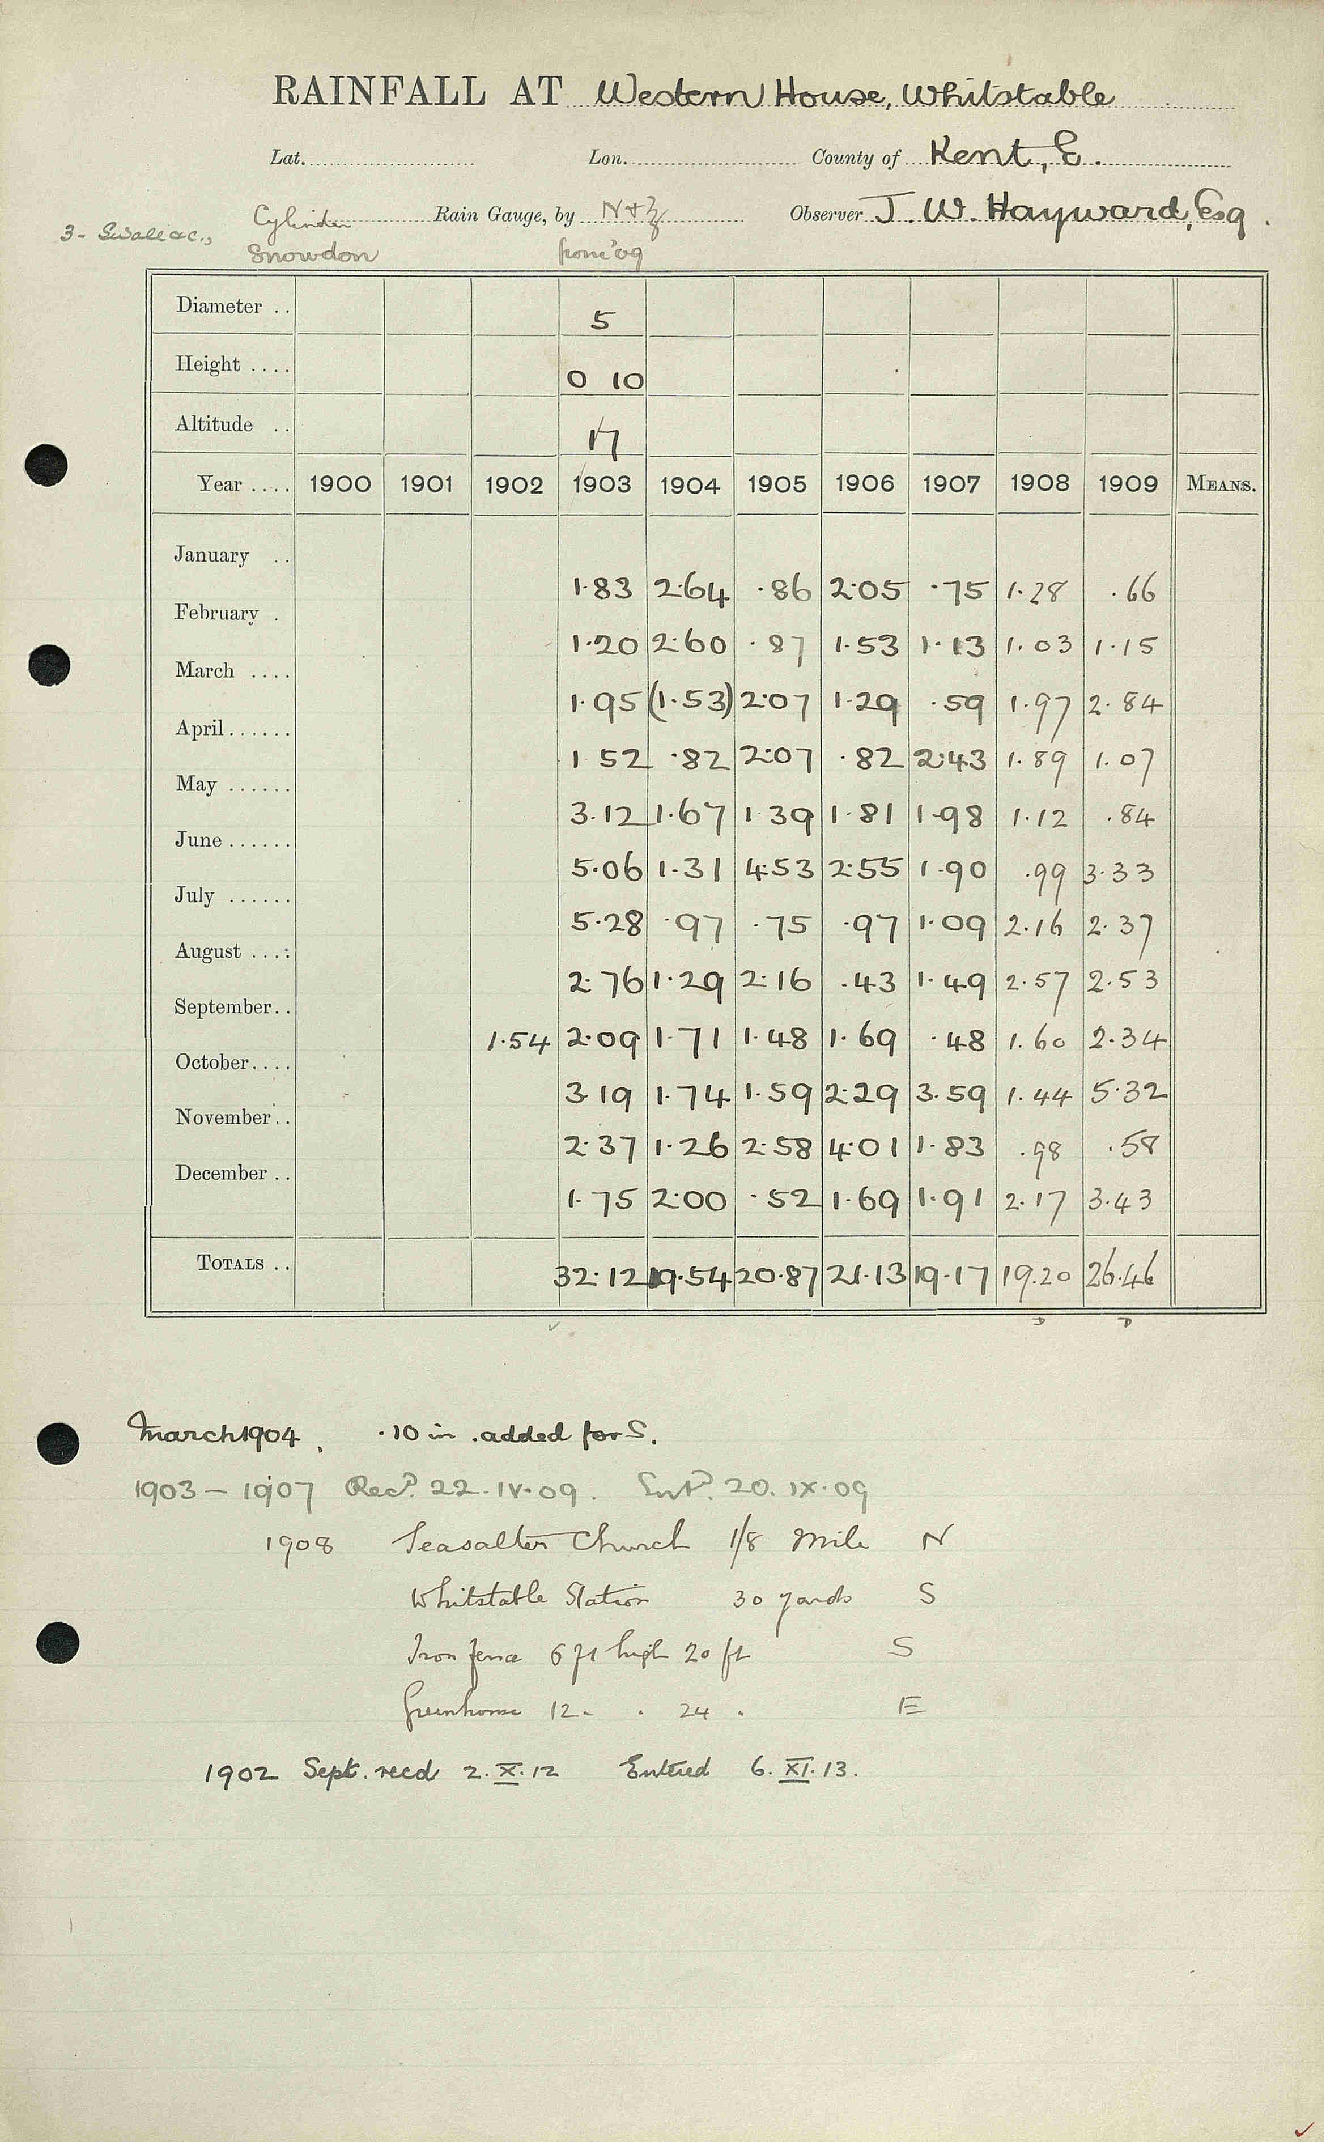 RAINFALL AT Western House, Whitstable
Lat. Lon. County of Kent, E.
Cylinder Rain Gauge, by N & Z Observer J. W. Hayward, Esq.
Snowdon from '09
Diameter .. 5
Height .... 0 10
Altitude .. 17
Year .... 1900 1901 1902 1903 1904 1905 1906 1907 1908 1909 MEANS.
January .. 1.83 2.64 .86 2.05 .75 1.28 .66
February . 1.20 2.60 .87 1.53 1.13 1.03 1.15
March .... 1.95 (1.53) 2.07 1.29 .59 1.97 2.84
April...... 1 52 .82 2.07 .82 2.43 1.89 1.07
May ...... 3.12 1.67 1 39 1.81 1.98 1.12 .84
June ...... 5.06 1.31 4.53 2.55 1.90 .99 3.33
July ...... 5.28 .97 .75 .97 1.09 2.16 2.37
August .... 2.76 1.29 2.16 .43 1.49 2.57 2.53
September.. 1.54 2.09 1.71 1.48 1.69 .48 1.60 2.34
October.... 3.19 1.74 1.59 2.29 3.59 1.44 5.32
November .. 2.37 1.26 2.58 4.01 1.83 .98 .58
December .. 1.75 2.00 .52 1.69 1.91 2.17 3.43
TOTALS .. 32.12 19.54 20.87 21.13 19.17 19.20 26.46
March 1904. .10 in. added for S.
1903 - 1907 Recd. 22.IV.09. Entd. 20.IX.09
1908 Seasalter Church 1/8 Mile N
Whitstable Station 30 yards S
Iron fence 6 ft high 20 ft S
Greenhouse 12 . . 24 . E
1902 Sept. recd 2.X.12 Entered 6.XI.13.